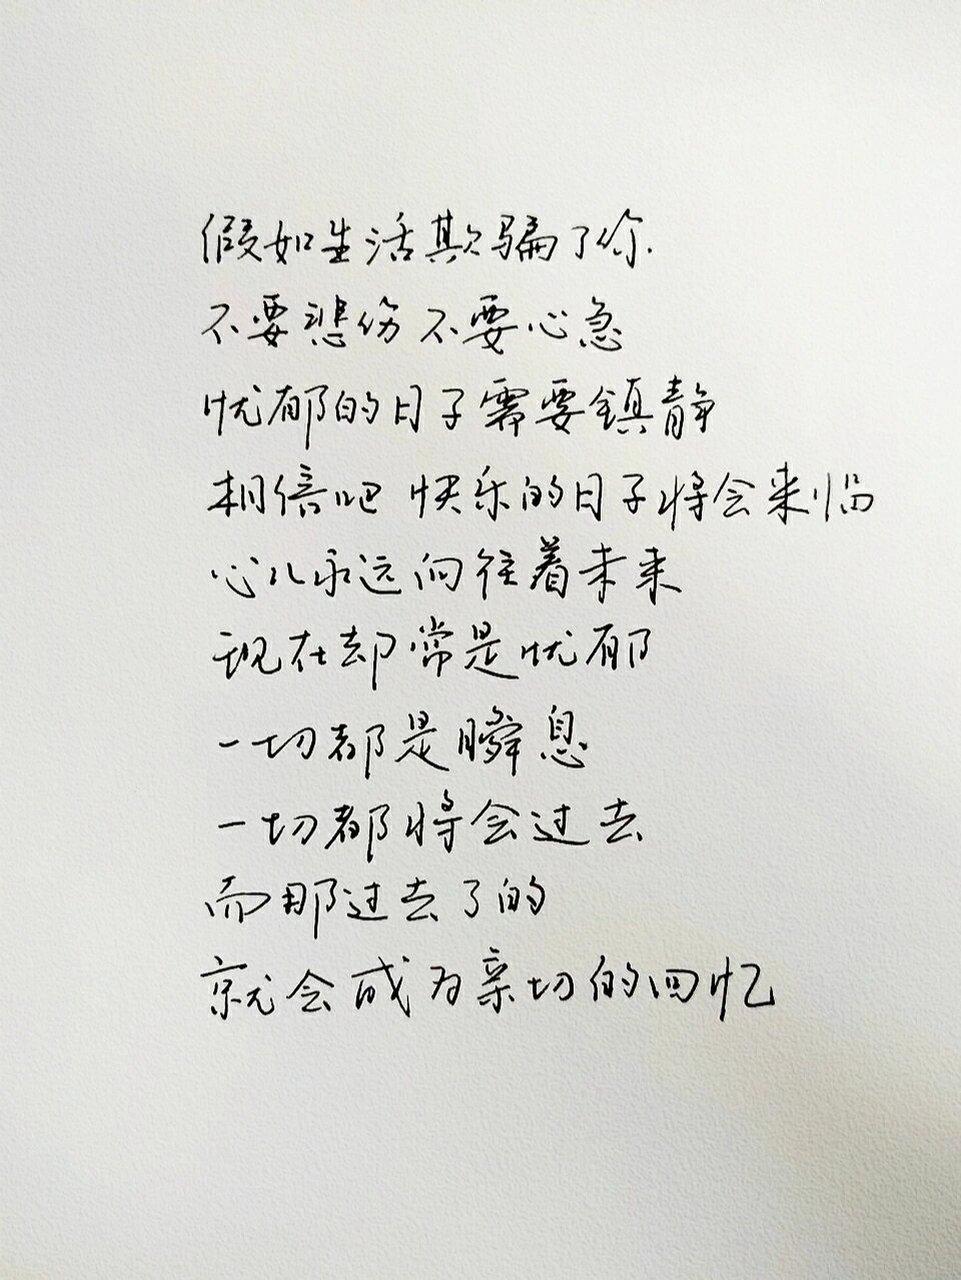 假如生活欺骗了你
不要悲伤 不要心急
忧郁的日子需要鎮静
相信吧 快乐的日子将会来临
心儿永远向往着未来
现在却常是忧郁
一切都是瞬息
一切都将会过去
而那过去了的
就会成为亲切的回忆